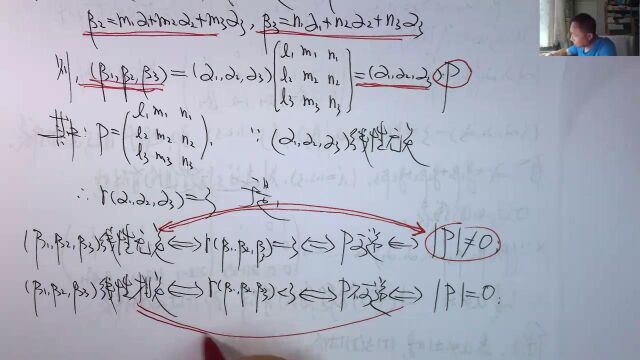 β₂=m₁α₁+m₂α₂+m₃α₃, β₃=n₁α₁+n₂α₂+n₃α₃
则, (β₁,β₂,β₃)=(α₁,α₂,α₃)(l₁ m₁ n₁ l₂ m₂ n₂ l₃ m₃ n₃)=(α₁,α₂,α₃)P
其中: P=(l₁ m₁ n₁ l₂ m₂ n₂ l₃ m₃ n₃), ∵(α₁,α₂,α₃)线性无关
∴ r(α₁,α₂,α₃)=3
(β₁,β₂,β₃)线性无关⟺r(β₁,β₂,β₃)=3⟺P可逆⟺|P|≠0,
(β₁,β₂,β₃)线性相关⟺r(β₁,β₂,β₃)<3⟺P不可逆⟺|P|=0;